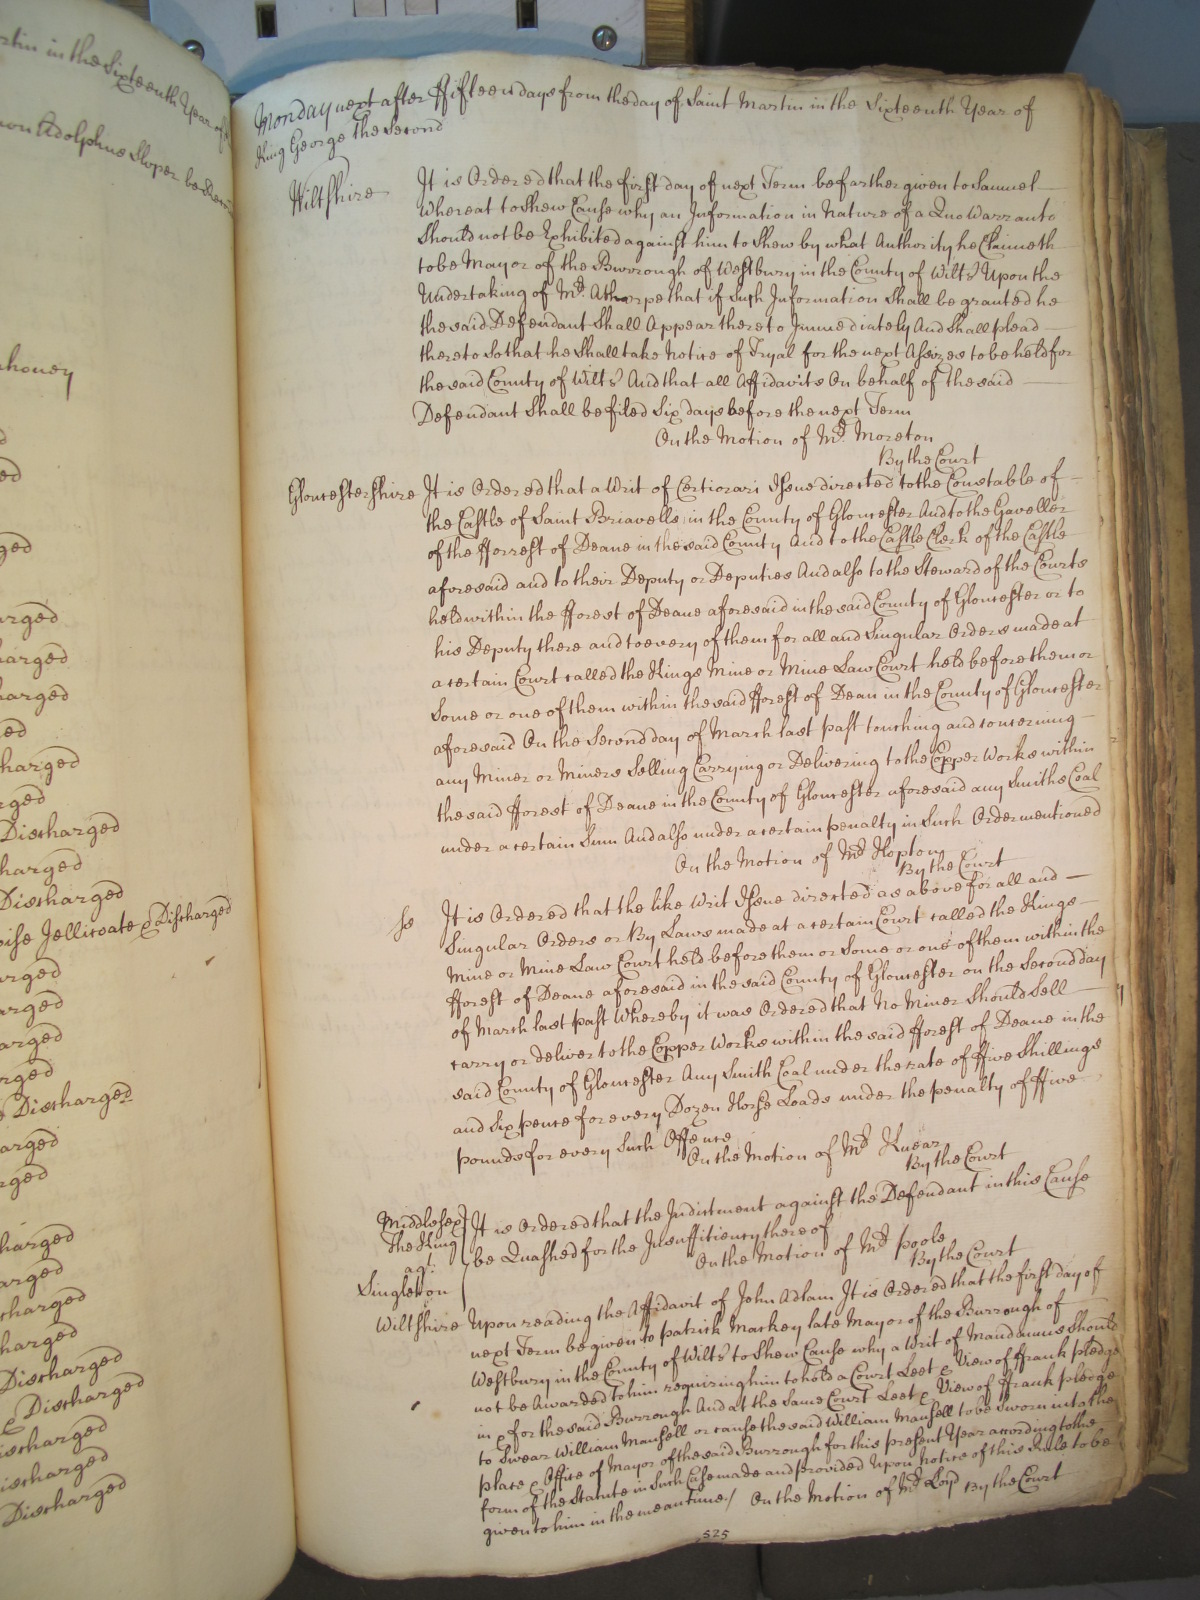 rtin in the Sixteenth Year of
Adolphus Sloper be
honey
ed
ged
arged
harged
harged
ed
harged
rged
Discharged
harged
Discharged
Jellicoate & Discharged
arged
arged
arged
rged
Discharged
arged
rged
harged
arged
charged
harged
Discharged
& Discharged
ischarged
ischarged
Discharged
Monday next after ffifteen days from the day of Saint Martin in the Sixteenth Year of
King George the Second
Wiltshire It is Ordered that the first day of next Term be farther given to Samuel
Whereat to shew Cause why an Information in Nature of a Quo Warranto
Should not be Exhibited against him to Shew by what Authority he Claimeth
to be Mayor of the Burrough of Westbury in the County of Wilts Upon the
Undertaking of Mr. Athorpe that if such Information shall be granted he
the said Defendant Shall Appear thereto Immediately And Shall plead
thereto So that he Shall take Notice of Tryal for the next Assizes to be held for
the said County of Wilts And that all Affidavits On behalf of the said
Defendant Shall be filed Six days before the next Term
On the Motion of Mr. Moreton
By the Court
Gloucestershire It is Ordered that a Writ of Certiorari Issue directed to the Constable of
the Castle of Saint Briavells in the County of Gloucester And to the Gaveller
of the fforrest of Deane in the said County And to the Castle Clerk of the Castle
aforesaid and to their Deputy or Deputies And also to the Steward of the Courts
held within the fforest of Deane aforesaid in the said County of Gloucester or to
his Deputy there and to every of them for all and Singular Orders made at
a certain Court called the Kings Mine or Mine Law Court held before them or
Some or one of them within the said fforest of Dean in the County of Gloucester
aforesaid On the Second day of March last past touching and concerning
any Miner or Miners Selling Carrying or Delivering to the Copper Works within
the said fforest of Deane in the County of Gloucester aforesaid any Smiths Coal
under a certain Sum And also under a certain penalty in Such Order mentioned
On the Motion of Mr Hopton
By the Court
So It is Ordered that the like Writ Issue directed as above for all and
Singular Orders or By Laws made at a certain Court called the Kings
Mine or Mine Law Court held before them or Some or one of them within the
fforest of Deane aforesaid in the said County of Gloucester on the Second day
of March last past Whereby it was Ordered that No Miner Should Sell
carry or deliver to the Copper Works within the said fforest of Deane in the
said County of Gloucester Any Smith Coal under the rate of ffive Shillings
and Six pence for every Dozen Horse Loads under the penalty of ffive
pounds for every Such Offence
On the Motion of Mr
By the Court
Middlesex It is Ordered that the Indictment against the Defendant in this Cause
The King be Quashed for the Insufficiency thereof
agt. On the Motion of Mr Poole
Singleton By the Court
Wiltshire Upon reading the Affidavit of John Adlam It is Ordered that the first day of
next Term be given to Patrick Markey late Mayor of the Burrough of
Westbury in the County of Wilts to Shew Cause why a Writ of Mandamus Should
not be Awarded to him requiring him to hold a Court Leet & View of ffrank pledge
in & for the said Burrough And At the Same Court Leet & View of ffrank pledge
to Swear William Mansell or cause the said William Mansell to be Sworn into the
place & Office of Mayor of the said Burrough for this present Year according to the
form of the Statute in Such Case made and provided Upon Notice of this Rule to be
given to him in the mean time / On the Motion of Mr Loyd By the Court
525